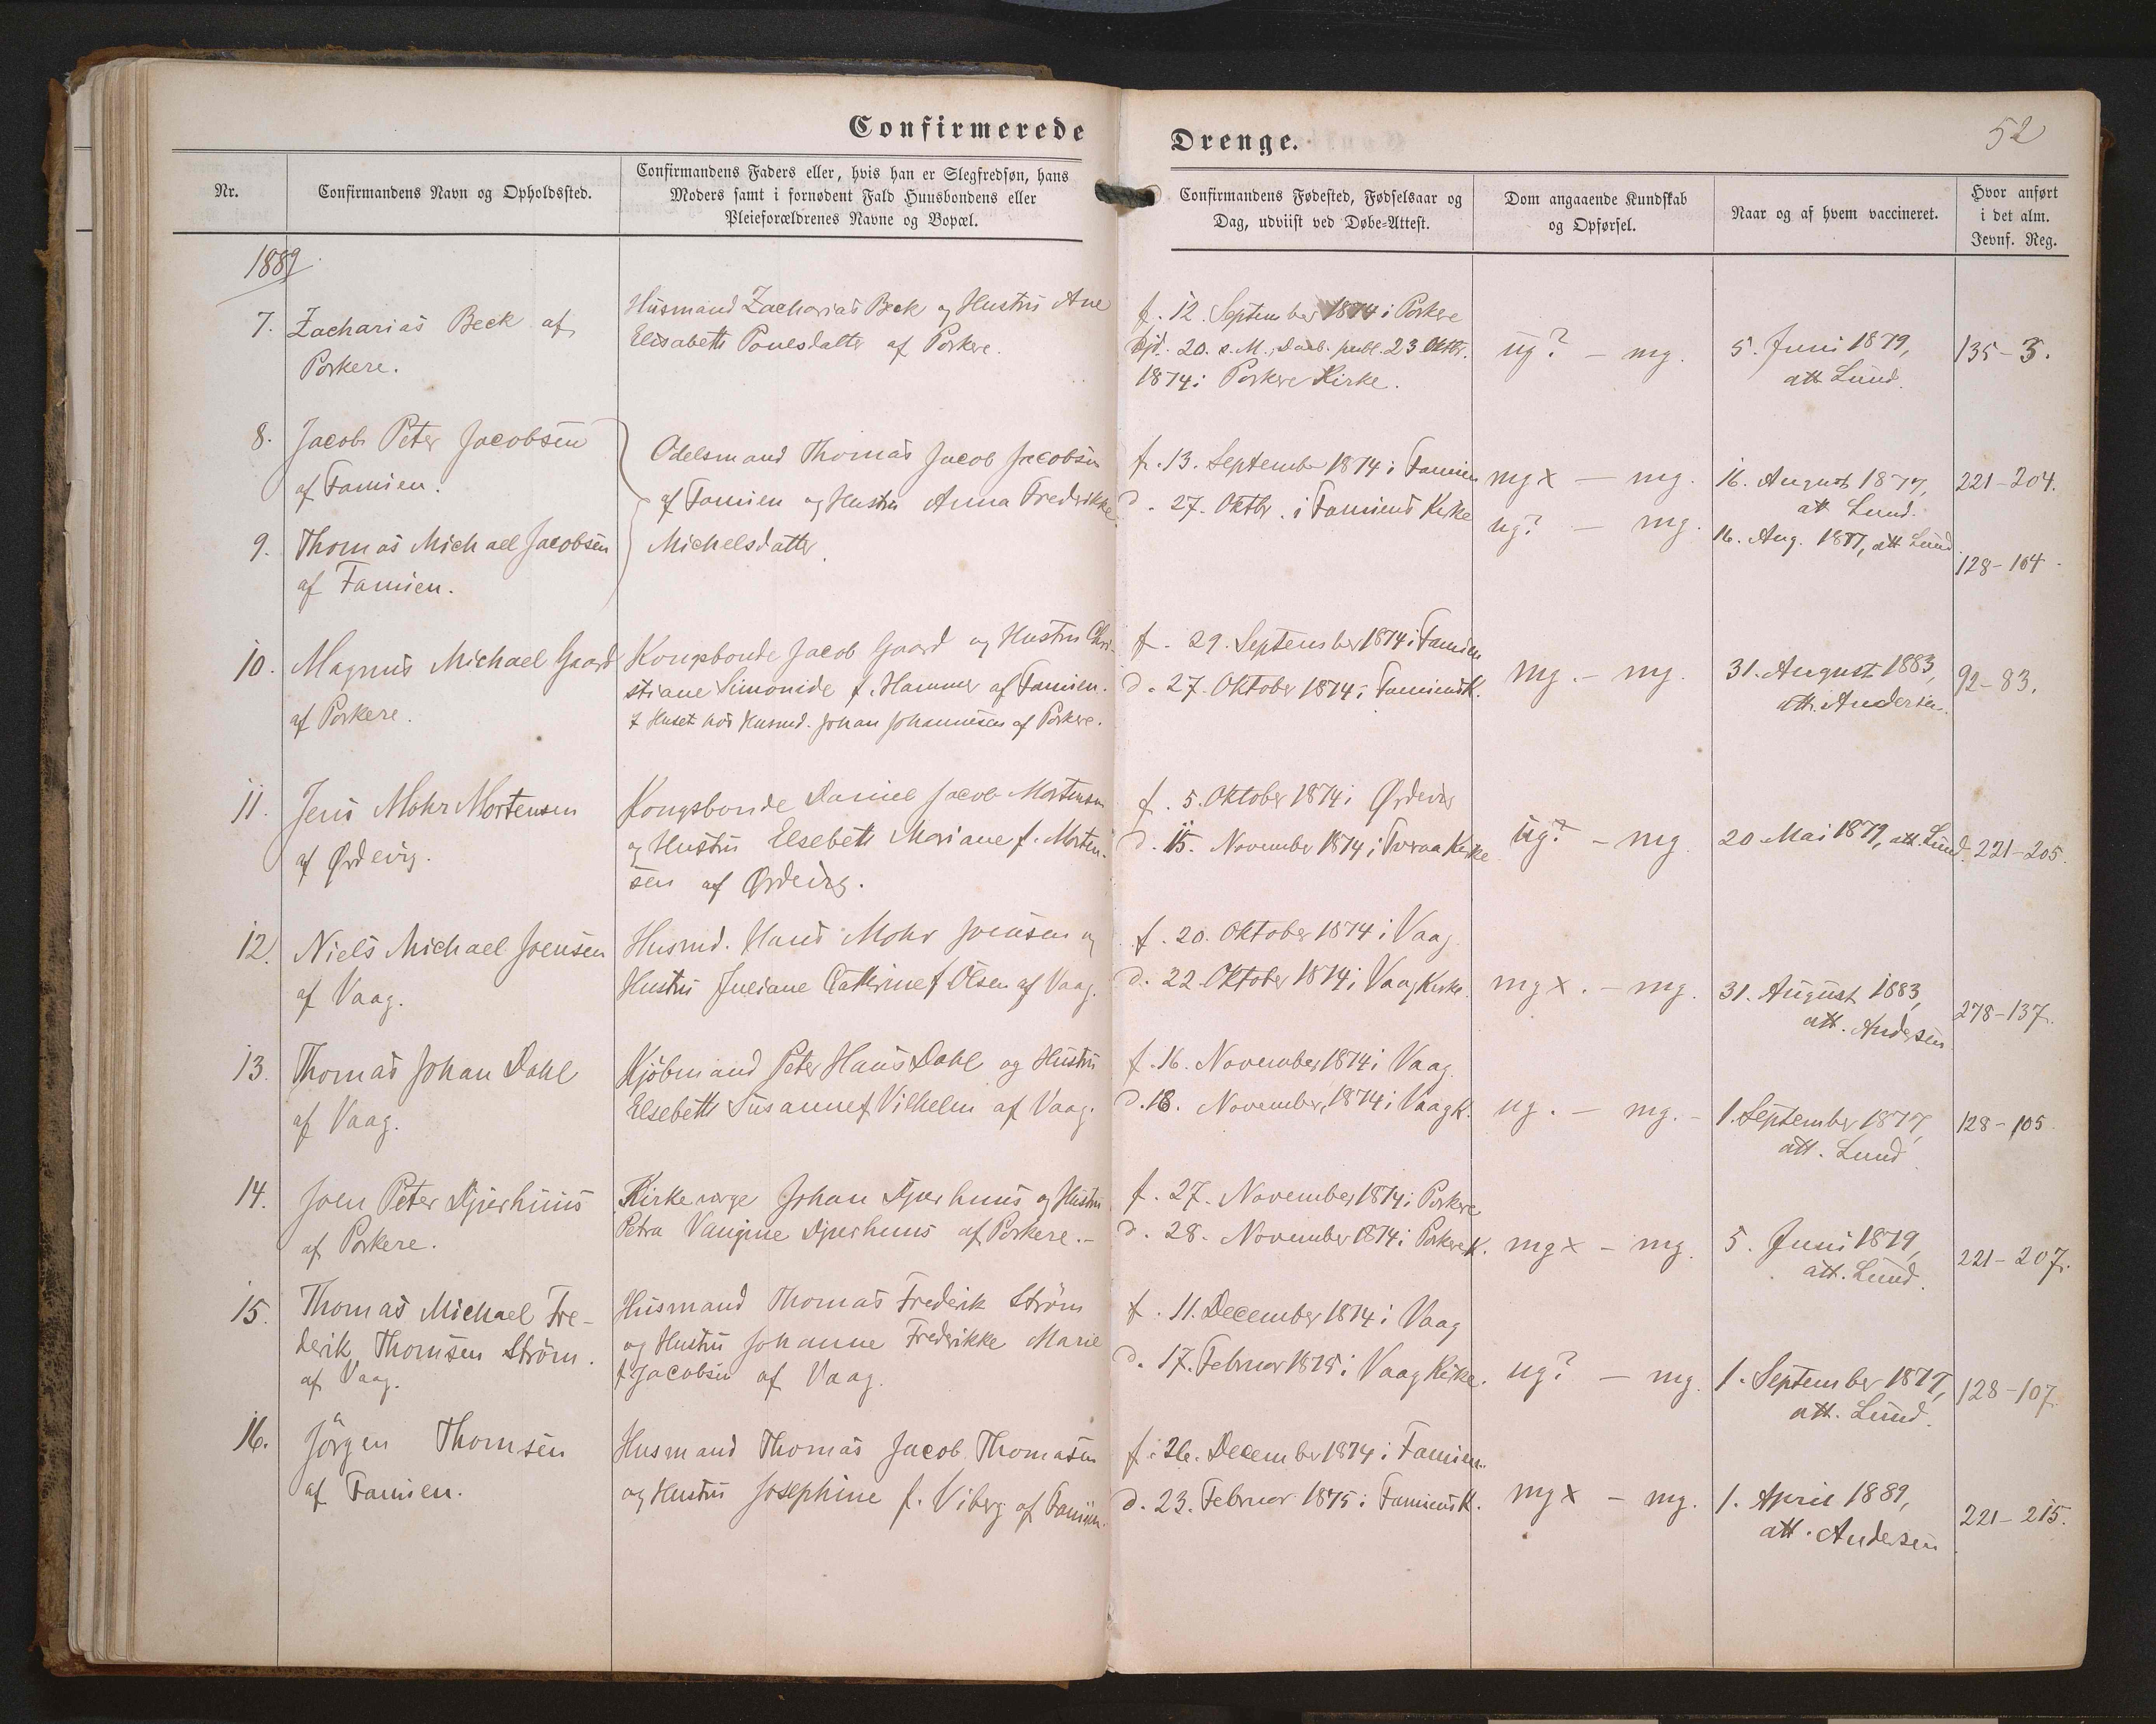 Confirmerede
Drenge.
52
Nr.
Confirmandens Navn og Opholdssted.
Confirmandens Faders eller, hvis han er Slegfredsøn, hans
Moders samt i fornødent Fald Huusbondens eller
Pleieforældrenes Navne og Bopæl.
Confirmandens Fødested, Fødselsaar og
Dag, udviist ved Døbe-Attest.
Dom angaaende Kundskab
og Opførsel.
Naar og af hvem vaccineret.
Hvor anført
i det alm.
Jevnf. Reg.
1889
7.
Zacharias Beck af
Porkere.
Husmand Zacharias Beck og Hustru Ane
Elisabeth Poulsdatter af Porkere.
f. 12. September 1874 i Porkere
hjd. 20. s. M., Daab. publ. 23 Oktbr.
1874 i Porkere Kirke.
ug? - mg.
5. Juni 1879,
att Lund.
135-3.
8.
Jacob Peter Jacobsen
af Famien.
Odelsmand Thomas Jacob Jacobsen
af Famien og Hustru Anna Fredrikke
Michelsdatter.
f. 13. September 1874 i Famien
d. 27. Oktbr. i Famiens Kirke
mgx - mg.
16. August 1877,
att Lund.
221-204.
9.
Thomas Michael Jacobsen
af Famien.
ug? - mg.
16. Aug. 1877, att Lund
128-104.
10.
Magnus Michael Gaard
af Porkere.
Kongsbonde Jacob Gaard og Hustru Chri-
stiane Simonide f. Hammer af Famien.
I Huset hos Husmd. Johan Johannesen af Porkere.
f. 29. September 1874 i Famien
d. 27. Oktober 1874 i Famiens K.
mg. - mg.
31. August 1883,
att. Andersen.
92-83.
11.
Jens Mohr Mortensen
af Ørdevig.
Kongsbonde Daniel Jacob Mortensen
og Hustru Elsebeth Mariane f. Morten-
sen af Ørdevig.
f. 5. Oktober 1874 i Ørdevig
d. 15. November 1874 i Tveraa Kirke
ug? - mg
20 Mai 1879, att. Lund.
221-205.
12.
Niels Michael Joensen
af Vaag.
Husmd. Hans Mohr Joensen og
Hustru Juliane Cathrine f Olsen af Vaag.
f. 20. Oktober 1874 i Vaag
d. 22. Oktober 1874 i Vaag Kirke.
mgx. - mg.
31. August 1883,
att. Andersen
278-137.
13.
Thomas Johan Dahl
af Vaag.
Kjöbmand Peter Hans Dahl og Hustru
Elsebeth Susanne f Vilhelm af Vaag.
f. 16. November 1874 i Vaag
d. 18. November, 1874 i Vaag K.
ug. - mg. -
1. September 1877,
att. Lund
128-105.
14.
Joen Peter Djurhuus
af Porkere.
Kirkeværge Johan Djurhuus og Hustru
Petra Djurhuus af Porkere. -
f. 27. November 1874 i Porkere
d. 28. November 1874 i Porkere K.
mgx - mg.
5. Juni 1879,
att. Lund.
221-207.
15.
Thomas Michael Fre-
derik Thomsen Ström.
af Vaag.
Husmand Thomas Frederik Ström
og Hustru Johanne Fredrikke Marie
f Jacobsen af Vaag.
f. 11. December 1874 i Vaag
d. 17. Februar 1875 i Vaag Kirke.
ug? - mg.
1. September 1877,
att. Lund.
128-107.
16.
Jörgen Thomsen
af Famien.
Husmand Thomas Jacob Thomasen
og Hustru Josephine f. Viberg af Famien.
f. 26. December 1874 i Famien.
d. 23. Februar 1875 i Famiens K.
mgx - mg.
1. April 1889,
att. Andersen
221-215.